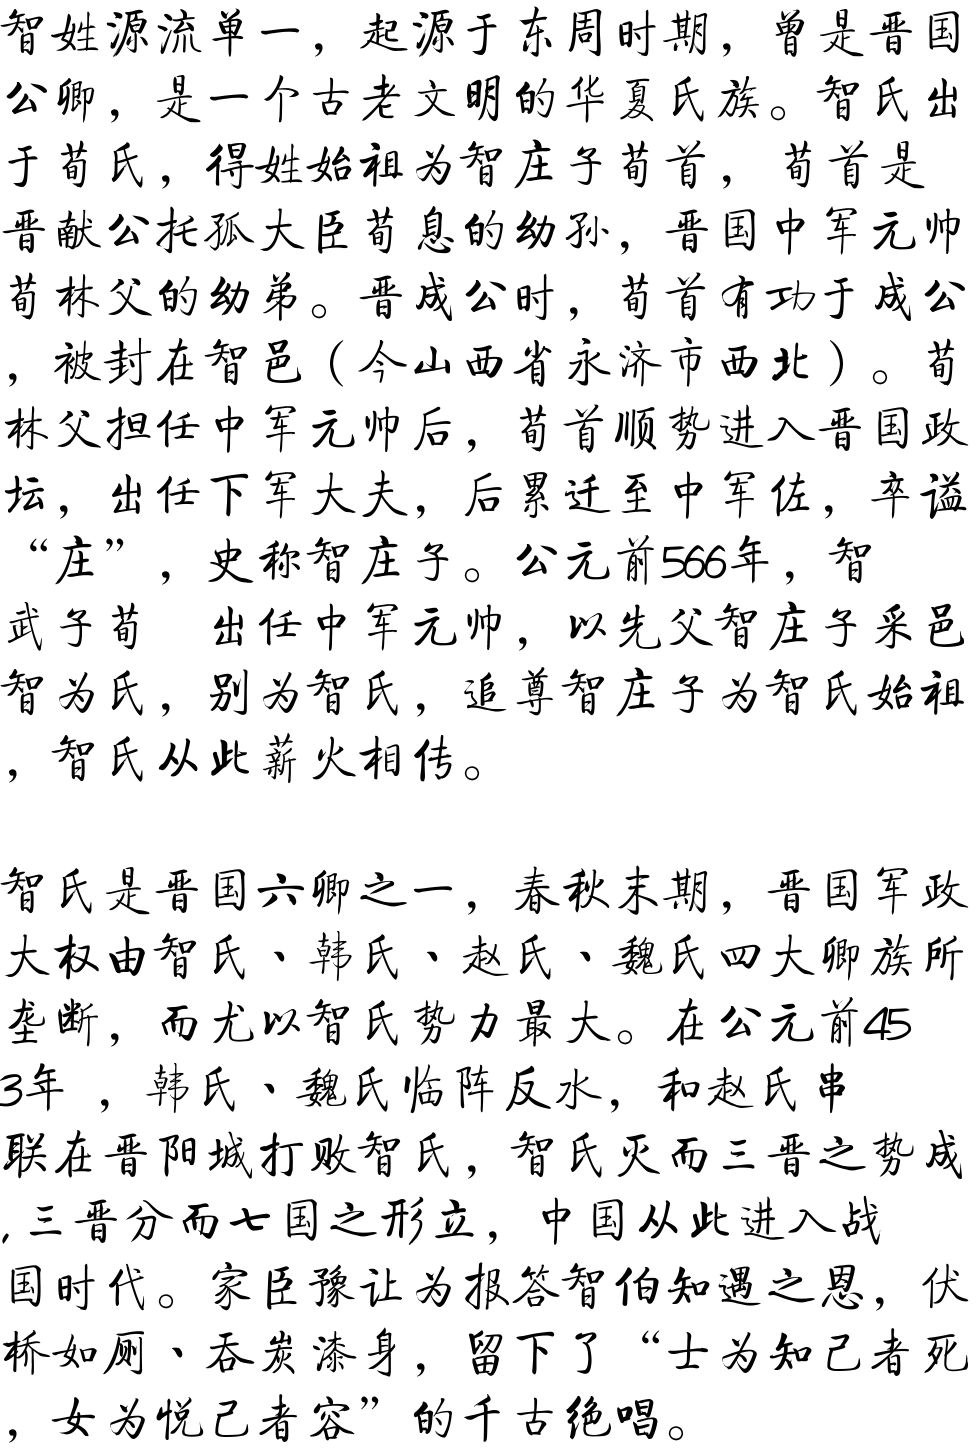 智姓源流单一，起源于东周时期，曾是晋国
公卿，是一个古老文明的华夏氏族。智氏出
于荀氏，得姓始祖为智庄子荀首，荀首是
晋献公托孤大臣荀息的幼孙，晋国中军元帅
荀林父的幼弟。晋成公时，荀首有功于成公
，被封在智邑（今山西省永济市西北）。荀
林父担任中军元帅后，荀首顺势进入晋国政
坛，出任下军大夫，后累迁至中军佐，卒谥
“庄”，史称智庄子。公元前566年，智
武子荀　出任中军元帅，以先父智庄子采邑
智为氏，别为智氏，追尊智庄子为智氏始祖
，智氏从此薪火相传。
智氏是晋国六卿之一，春秋末期，晋国军政
大权由智氏、韩氏、赵氏、魏氏四大卿族所
垄断，而尤以智氏势力最大。在公元前45
3年，韩氏、魏氏临阵反水，和赵氏串
联在晋阳城打败智氏，智氏灭而三晋之势成
,三晋分而七国之形立，中国从此进入战
国时代。家臣豫让为报答智伯知遇之恩，伏
桥如厕、吞炭漆身，留下了“士为知己者死
，女为悦己者容”的千古绝唱。